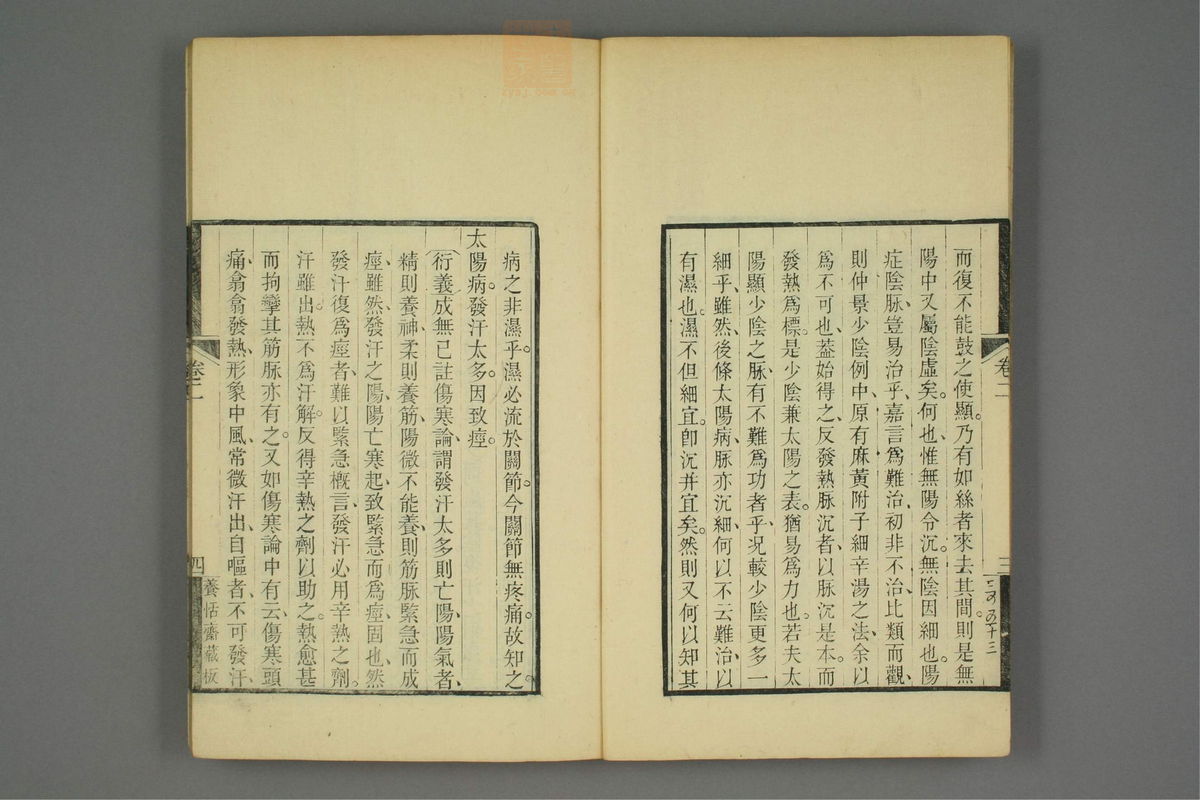 而復不能鼓之使顯。乃有如絲者來去其間。則是無
陽中又屬陰虛矣。何也、惟無陽令沉。無陰因細也。陽
症陰脉、豈易治乎、嘉言爲難治、初非不治、比類而觀、
則仲景少陰例中、原有麻黃附子細辛湯之法、余以
爲不可也、葢始得之、反發熱脉沉者、以脉沉是本。而
發熱爲標。是少陰兼太陽之表。猶易爲力也。若夫太
陽顯少陰之脉、有不難爲功者乎、況較少陰更多一
細乎、雖然、後條太陽病、脉亦沉細、何以不云難治、以
有濕也。濕不但細宜。卽沉并宜矣。然則又何以知其
卷二
三
病之非濕乎。濕必流於關節。今關節無疼痛。故知之。
太陽病。發汗太多。因致痙。
衍義成無己註傷寒論、謂發汗太多、則亡陽、陽氣者、
精則養神、柔則養筋、陽微不能養、則筋脉緊急而成
痙、雖然、發汗之陽、陽亡寒起、致緊急而爲痙固也、然
發汗復爲痙者、難以緊急概言、發汗必用辛熱之劑。
汗雖出。熱不爲汗解。反得辛熱之劑以助之。熱愈甚
而拘攣其筋脉亦有之。又如傷寒論中有云、傷寒頭
痛、翕翕發熱、形象中風、常微汗出、自嘔者、不可發汗、
卷二
四
養恬齋藏板